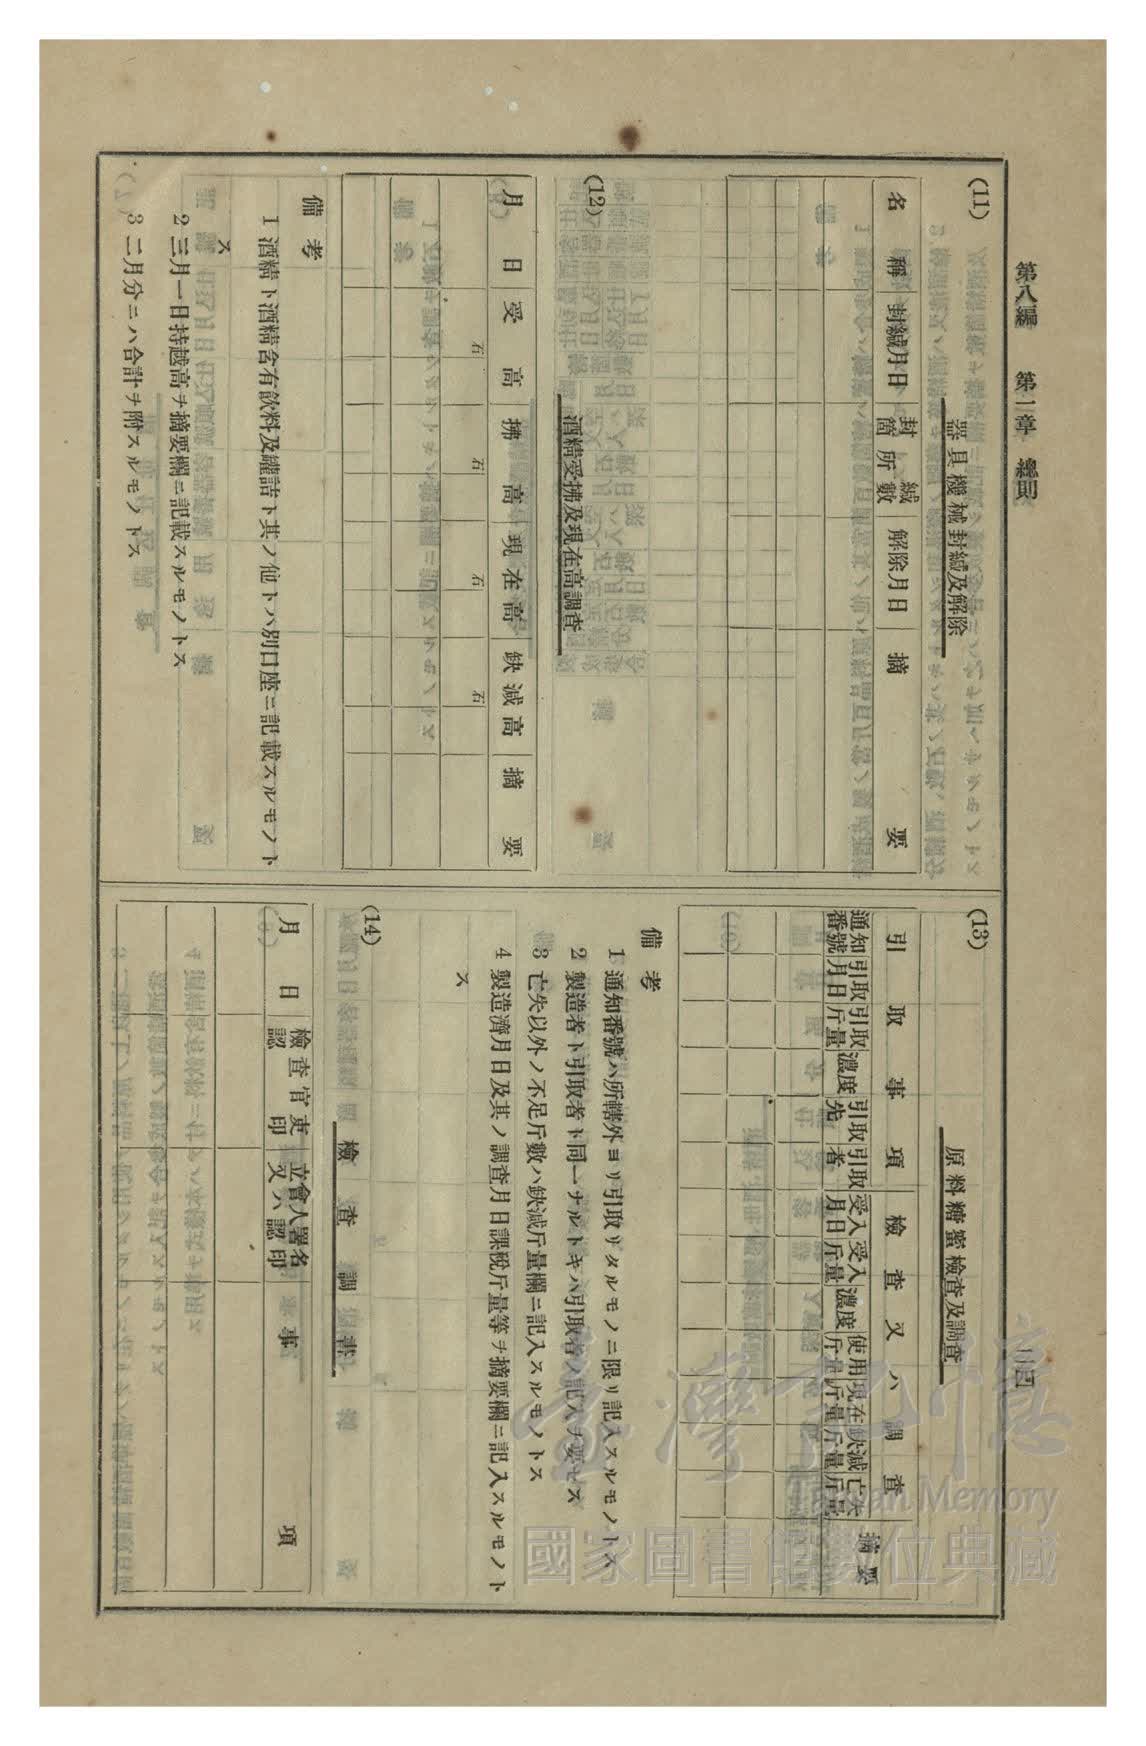 第八編 第二章 總則
三四
(11)
器具機械封緘及解除
名稱 封緘月日 封緘箇所數 解除月日 摘要
(12)
酒精受拂及現在高調査
月日 受高 拂高 現在高 缺減高 摘要
石 石 石 石
備考
1 酒精ト酒精含有飮料及罐詰ト其ノ他トハ別口座ニ記載スルモノト
ス
2 三月一日持越高ヲ摘要欄ニ記載スルモノトス
3 二月分ニハ合計ヲ附スルモノトス
(13)
原料糖蜜檢査及調査
引取事項 檢査又ハ調査 摘要
通知番號 引取月日 引取斤量 濃度 引取先 引取者 受入月日 受入斤量 濃度 使用斤量 現在斤量 缺減斤量 亡失斤量
備考
1 通知番號ハ所轄外ヨリ引取リタルモノニ限リ記入スルモノトス
2 製造者ト引取者ト同一ナルトキハ引取者ノ記入ヲ要セス
3 亡失以外ノ不足斤數ハ缺減斤量欄ニ記入スルモノトス
4 製造濟月日及其ノ調査月日課稅斤量等ヲ摘要欄ニ記入スルモノト
ス
(14)
檢査調書
月日 檢査官吏認印 立會人署名又ハ認印 事項
臺灣記憶
Taiwan Memory
國家圖書館數位典藏